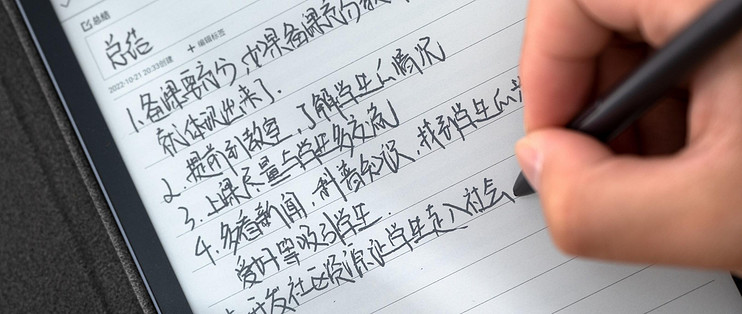 总结
总结
2022-10-21 20:33创建 + 编辑标签
1. 备课要充分,如果备课充分
就体现出来了.
2. 提前到教室,了解学生的情况
3. 上课尽量与学生多交流
4. 多看新闻,科普知识,找到学生的
爱好等吸引学生.
开发社区资源让学生走入社会